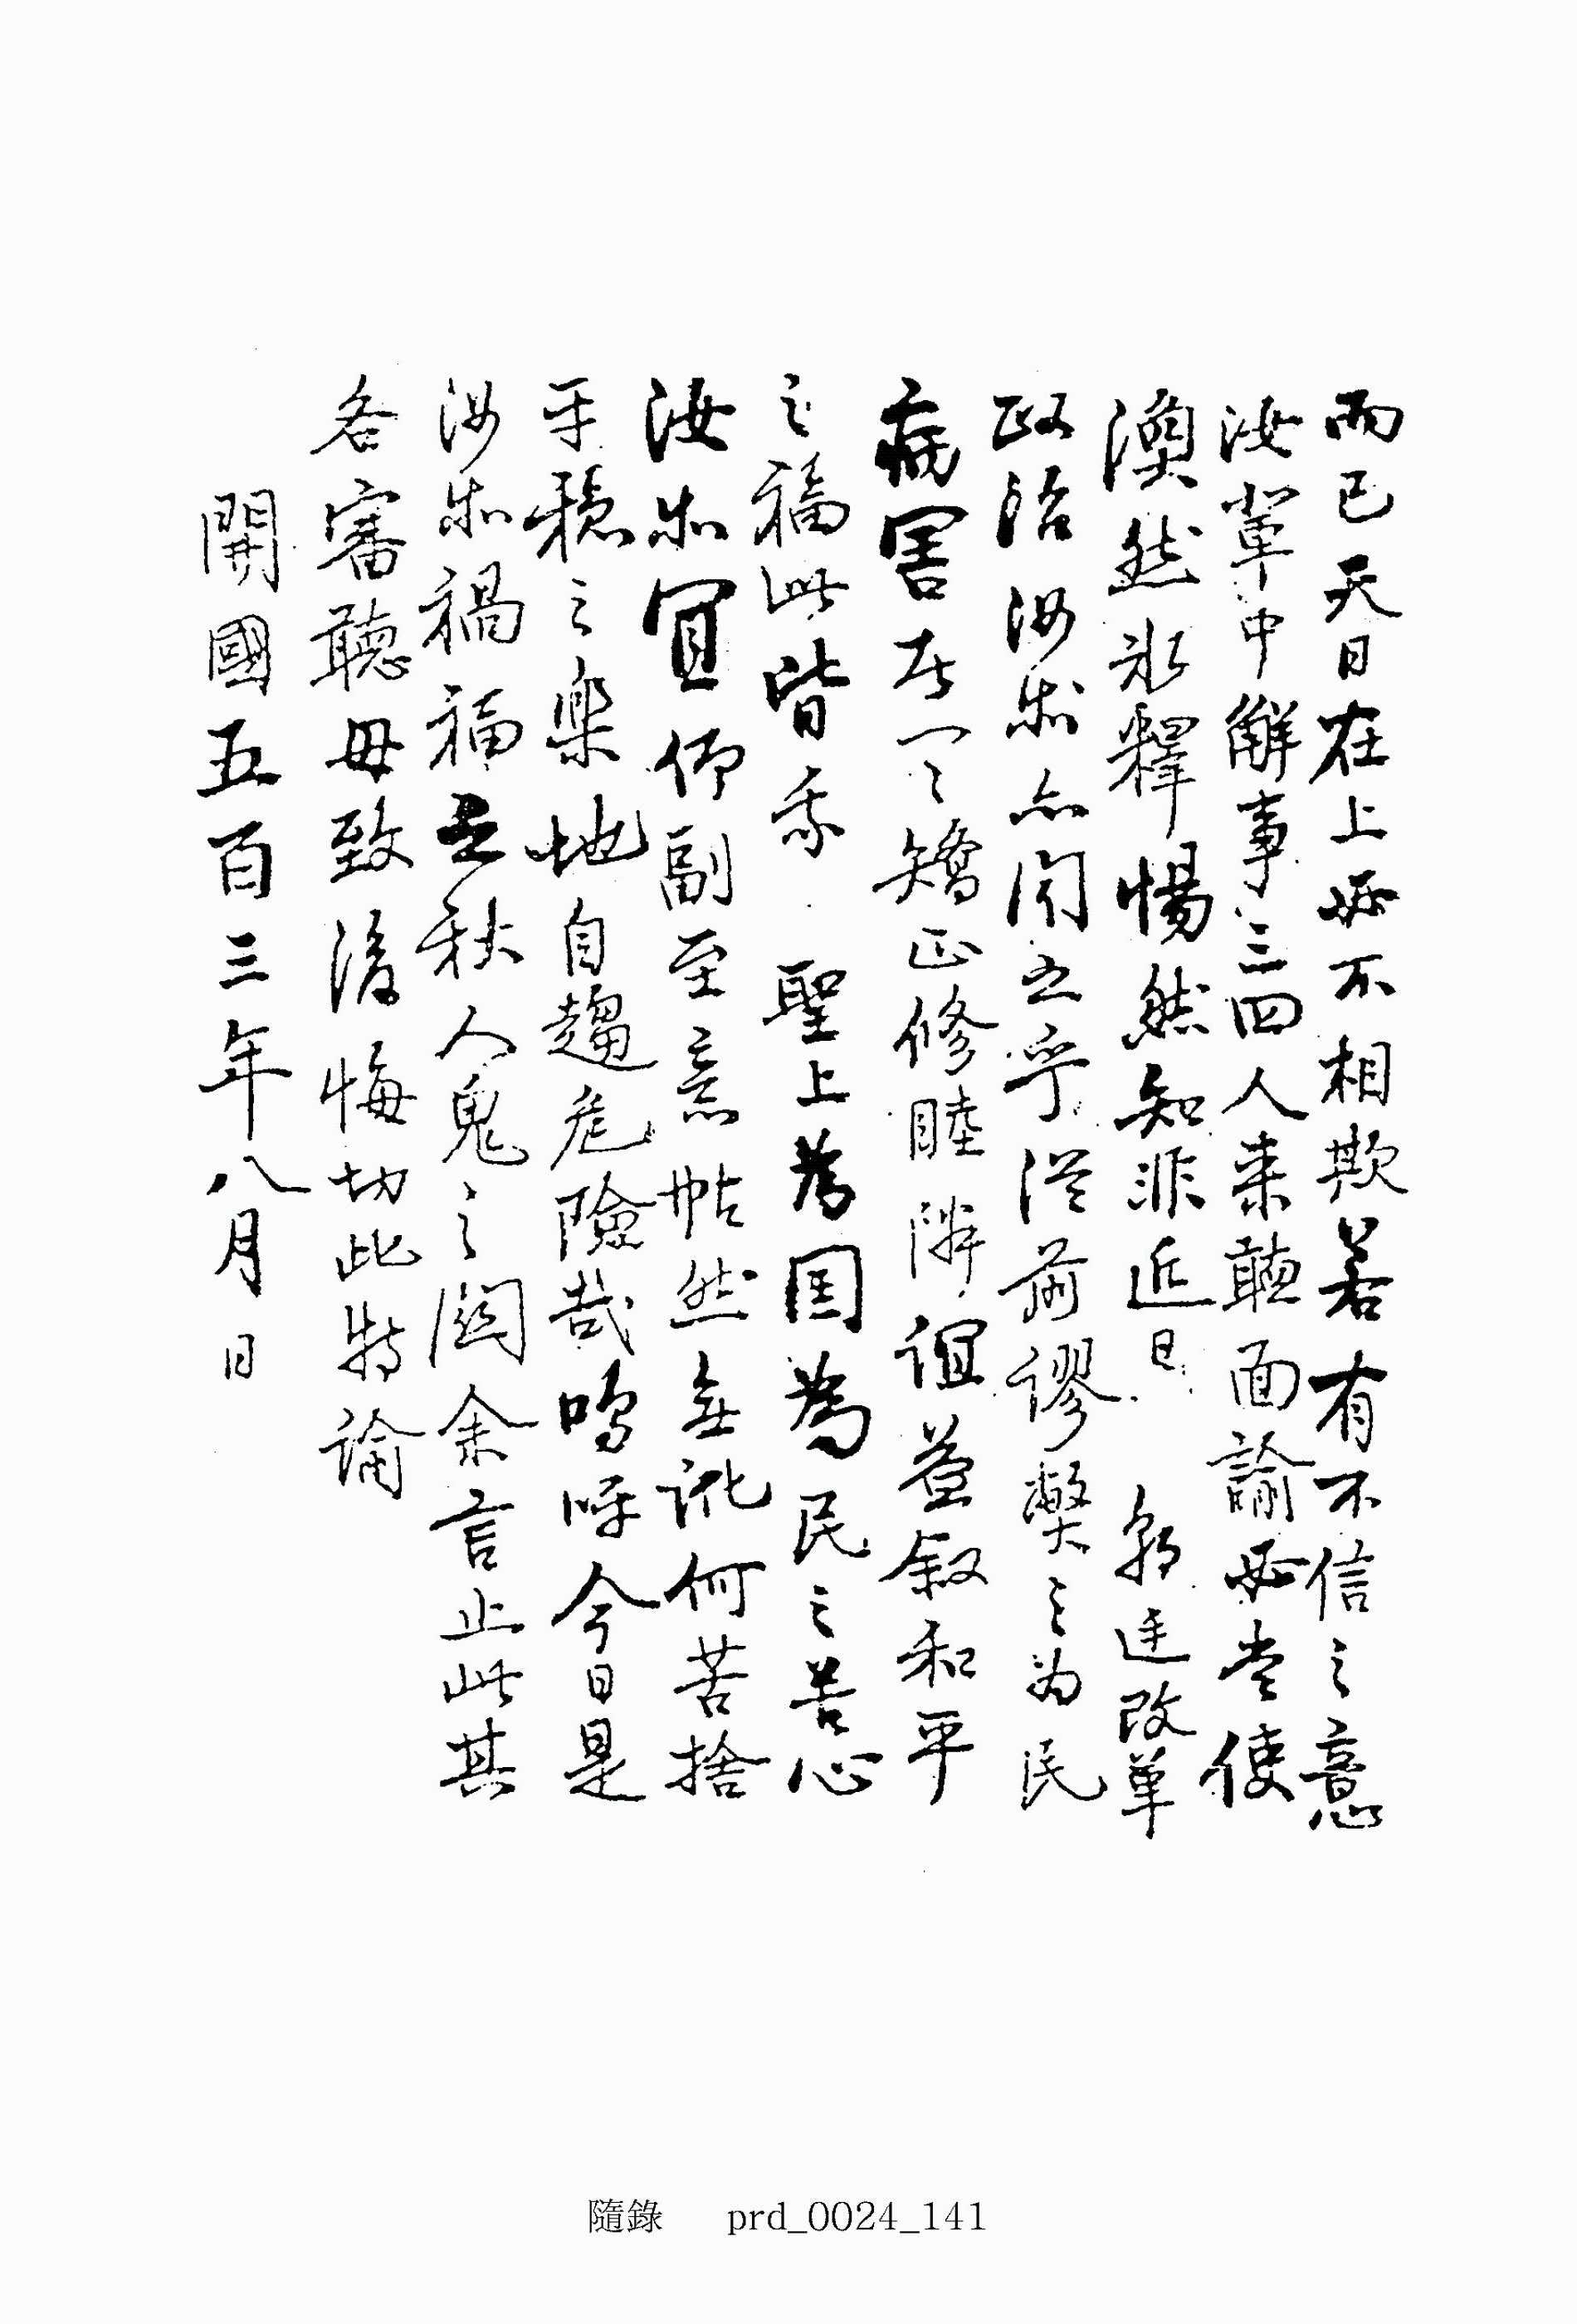 而已天日在上必不相欺若有不信之意
汝輩中解事三四人来聽面諭必當使
渙然氷釋惕然知非近日 朝廷改革
政治汝等亦聞之乎從前謬弊之爲民
病害者一々矯正修睦隣誼益叙和平
之福此皆我 聖上爲国爲民之苦心
汝等宜仰副至意帖然無訛何苦捨
平穩之樂地自趨危險哉嗚呼今日是
汝等禍福之秋人鬼之關余言止此其
各審聽毋致後悔切此特諭
開國五百三年八月 日
隨錄 prd_0024_141